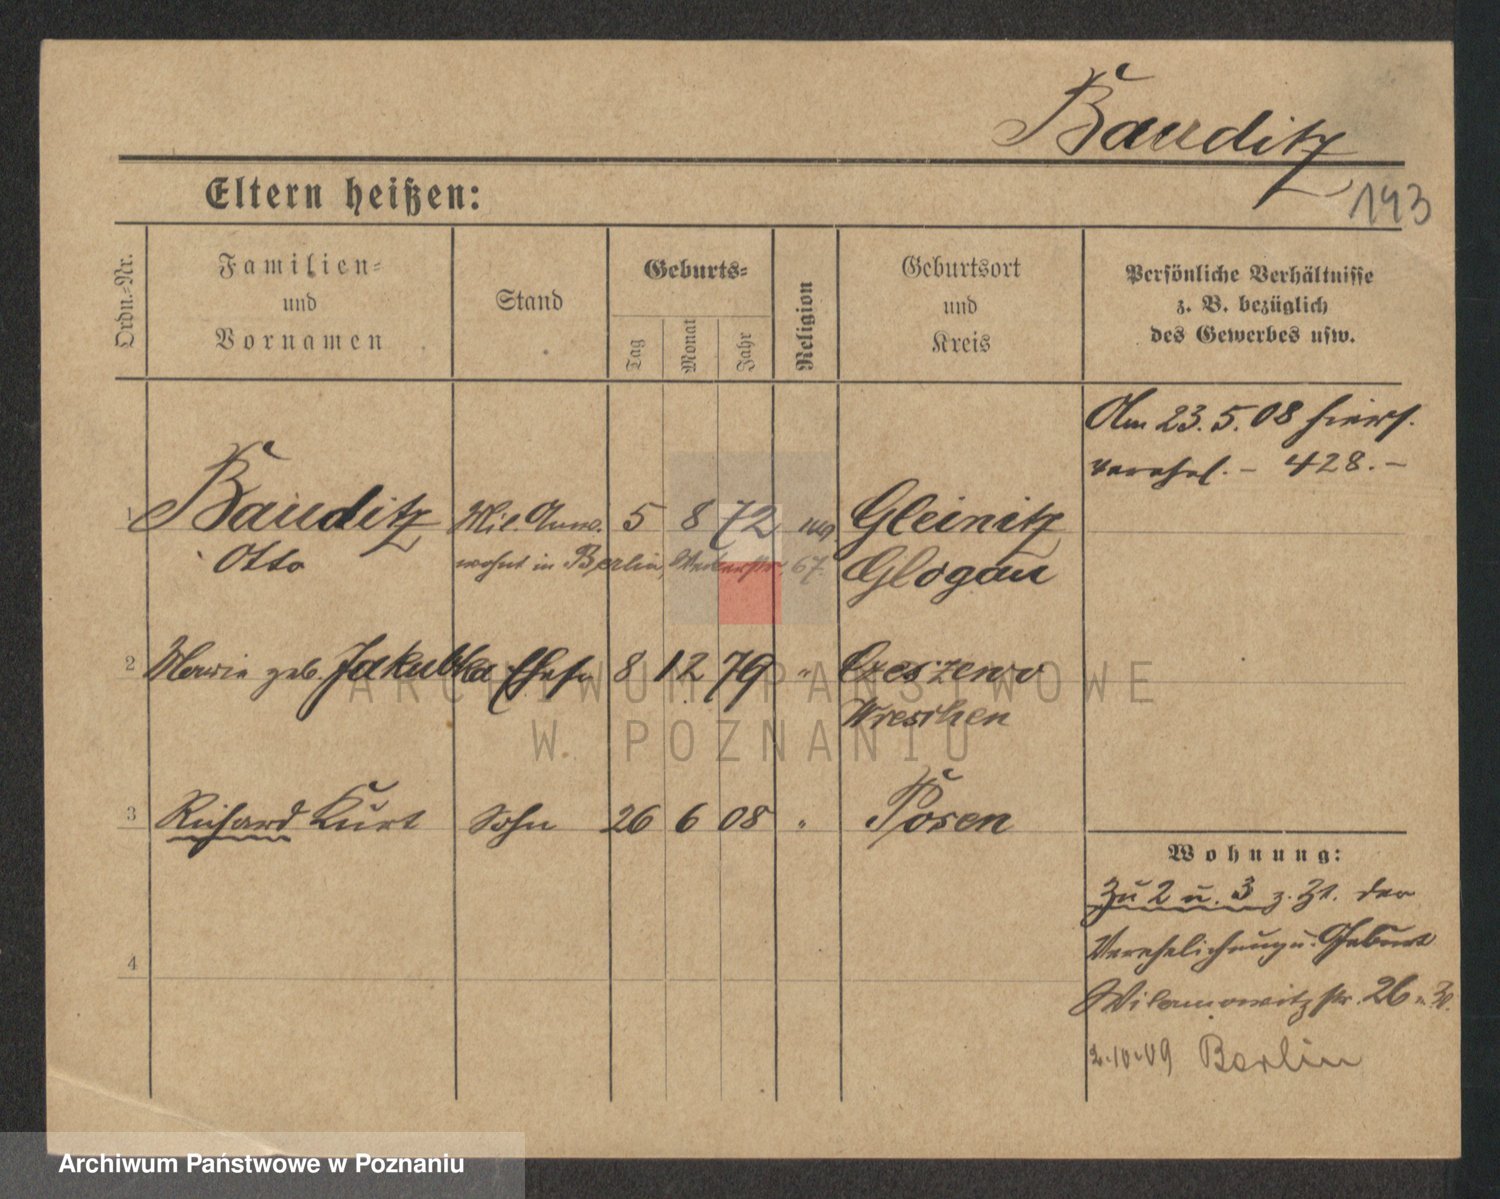 Bauditz
193
Eltern heißen:
Ordn.-Nr.
Familien-
und
Vornamen
Stand
Geburts-
Tag
Monat
Jahr
Religion
Geburtsort
und
Kreis
Persönliche Verhältnisse
z. B. bezüglich
des Gewerbes usw.
Am 23.5.08 hiers.
verehel. - 428.-
1 Bauditz Mil. Anw. 5 8 72 Gleinitz
Otto wohnt in Berlin, 67. Glogau
2 Marie geb. Jakubka Ehefr 8 12 79 " Czeszewo
Wreschen
3 Richard Kurt Sohn 26 6 08 " Posen
Wohnung:
Zu 2 u. 3 z. Zt. der
Verehelichung u. Geburt
4
Wilamowitzstr. 26
2.10.09 Berlin
ARCHIWUM PAŃSTWOWE
W POZNANIU
Archiwum Państwowe w Poznaniu